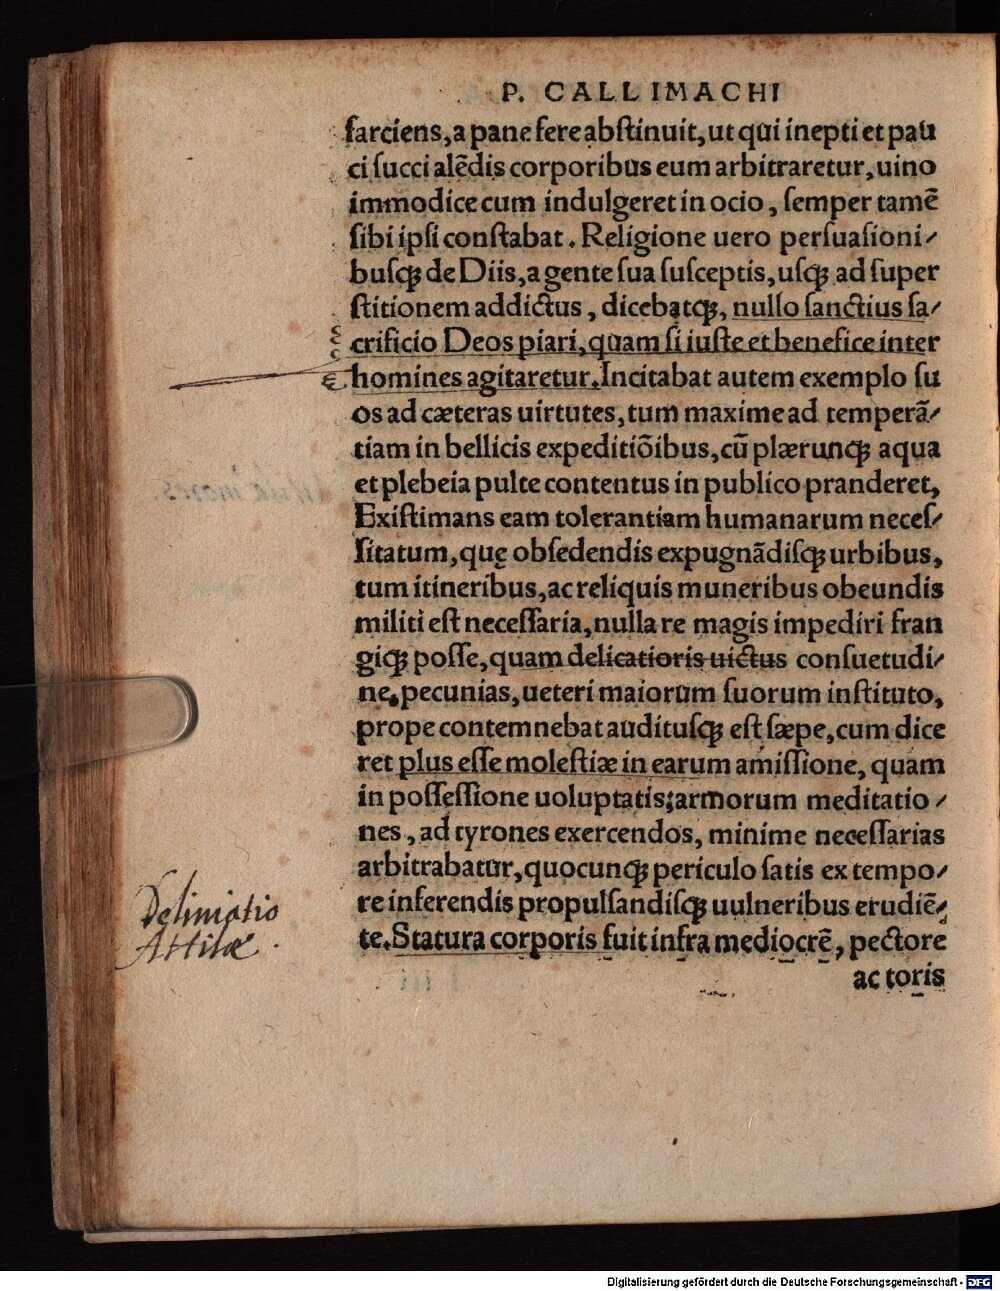 P. CALLIMACHI
ſarciens, a pane fere abſtinuit, ut qui inepti et pau
ci ſucci alēdis corporibus eum arbitraretur, uino
immodice cum indulgeret in ocio, ſemper tamē
ſibi ipſi conſtabat. Religione uero perſuaſioni⸗
buſqꝫ de Diis, a gente ſua ſuſceptis, uſqꝫ ad ſuper
ſtitionem addictus, dicebatqꝫ, nullo ſanctius ſa⸗
crificio Deos piari, quam ſi iuſte et benefice inter
homines agitaretur. Incitabat autem exemplo ſu
os ad cæteras uirtutes, tum maxime ad temperā⸗
tiam in bellicis expeditiōibus, cū plærunqꝫ aqua
et plebeia pulte contentus in publico pranderet,
Exiſtimans eam tolerantiam humanarum neceſ⸗
ſitatum, quę obſedendis expugnādiſqꝫ urbibus,
tum itineribus, ac reliquis muneribus obeundis
militi eſt neceſſaria, nulla re magis impediri fran
giqꝫ poſſe, quam delicatioris uictus conſuetudi⸗
ne. pecunias, ueteri maiorum ſuorum inſtituto,
prope contemnebat audituſqꝫ eſt ſæpe, cum dice
ret plus eſſe moleſtiæ in earum amiſſione, quam
in poſſeſſione uoluptatis; armorum meditatio⸗
nes, ad tyrones exercendos, minime neceſſarias
arbitrabatur, quocunqꝫ periculo ſatis ex tempo⸗
re inferendis propulſandiſqꝫ uulneribus erudiē⸗
te. Statura corporis fuit infra mediocrē, pectore
ac toris
Deliniatio
Attilæ.
Digitalisierung gefördert durch die Deutsche Forschungsgemeinschaft - DFG